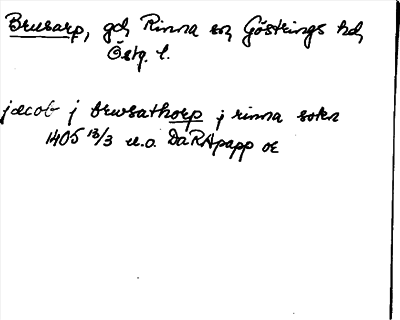 Brusarp, gd, Rinna sn, Göstrings hd,
Östg. l.
jacob j bruusathorp j rinna sokn
1405 13/3 u.o. DaRApapp or